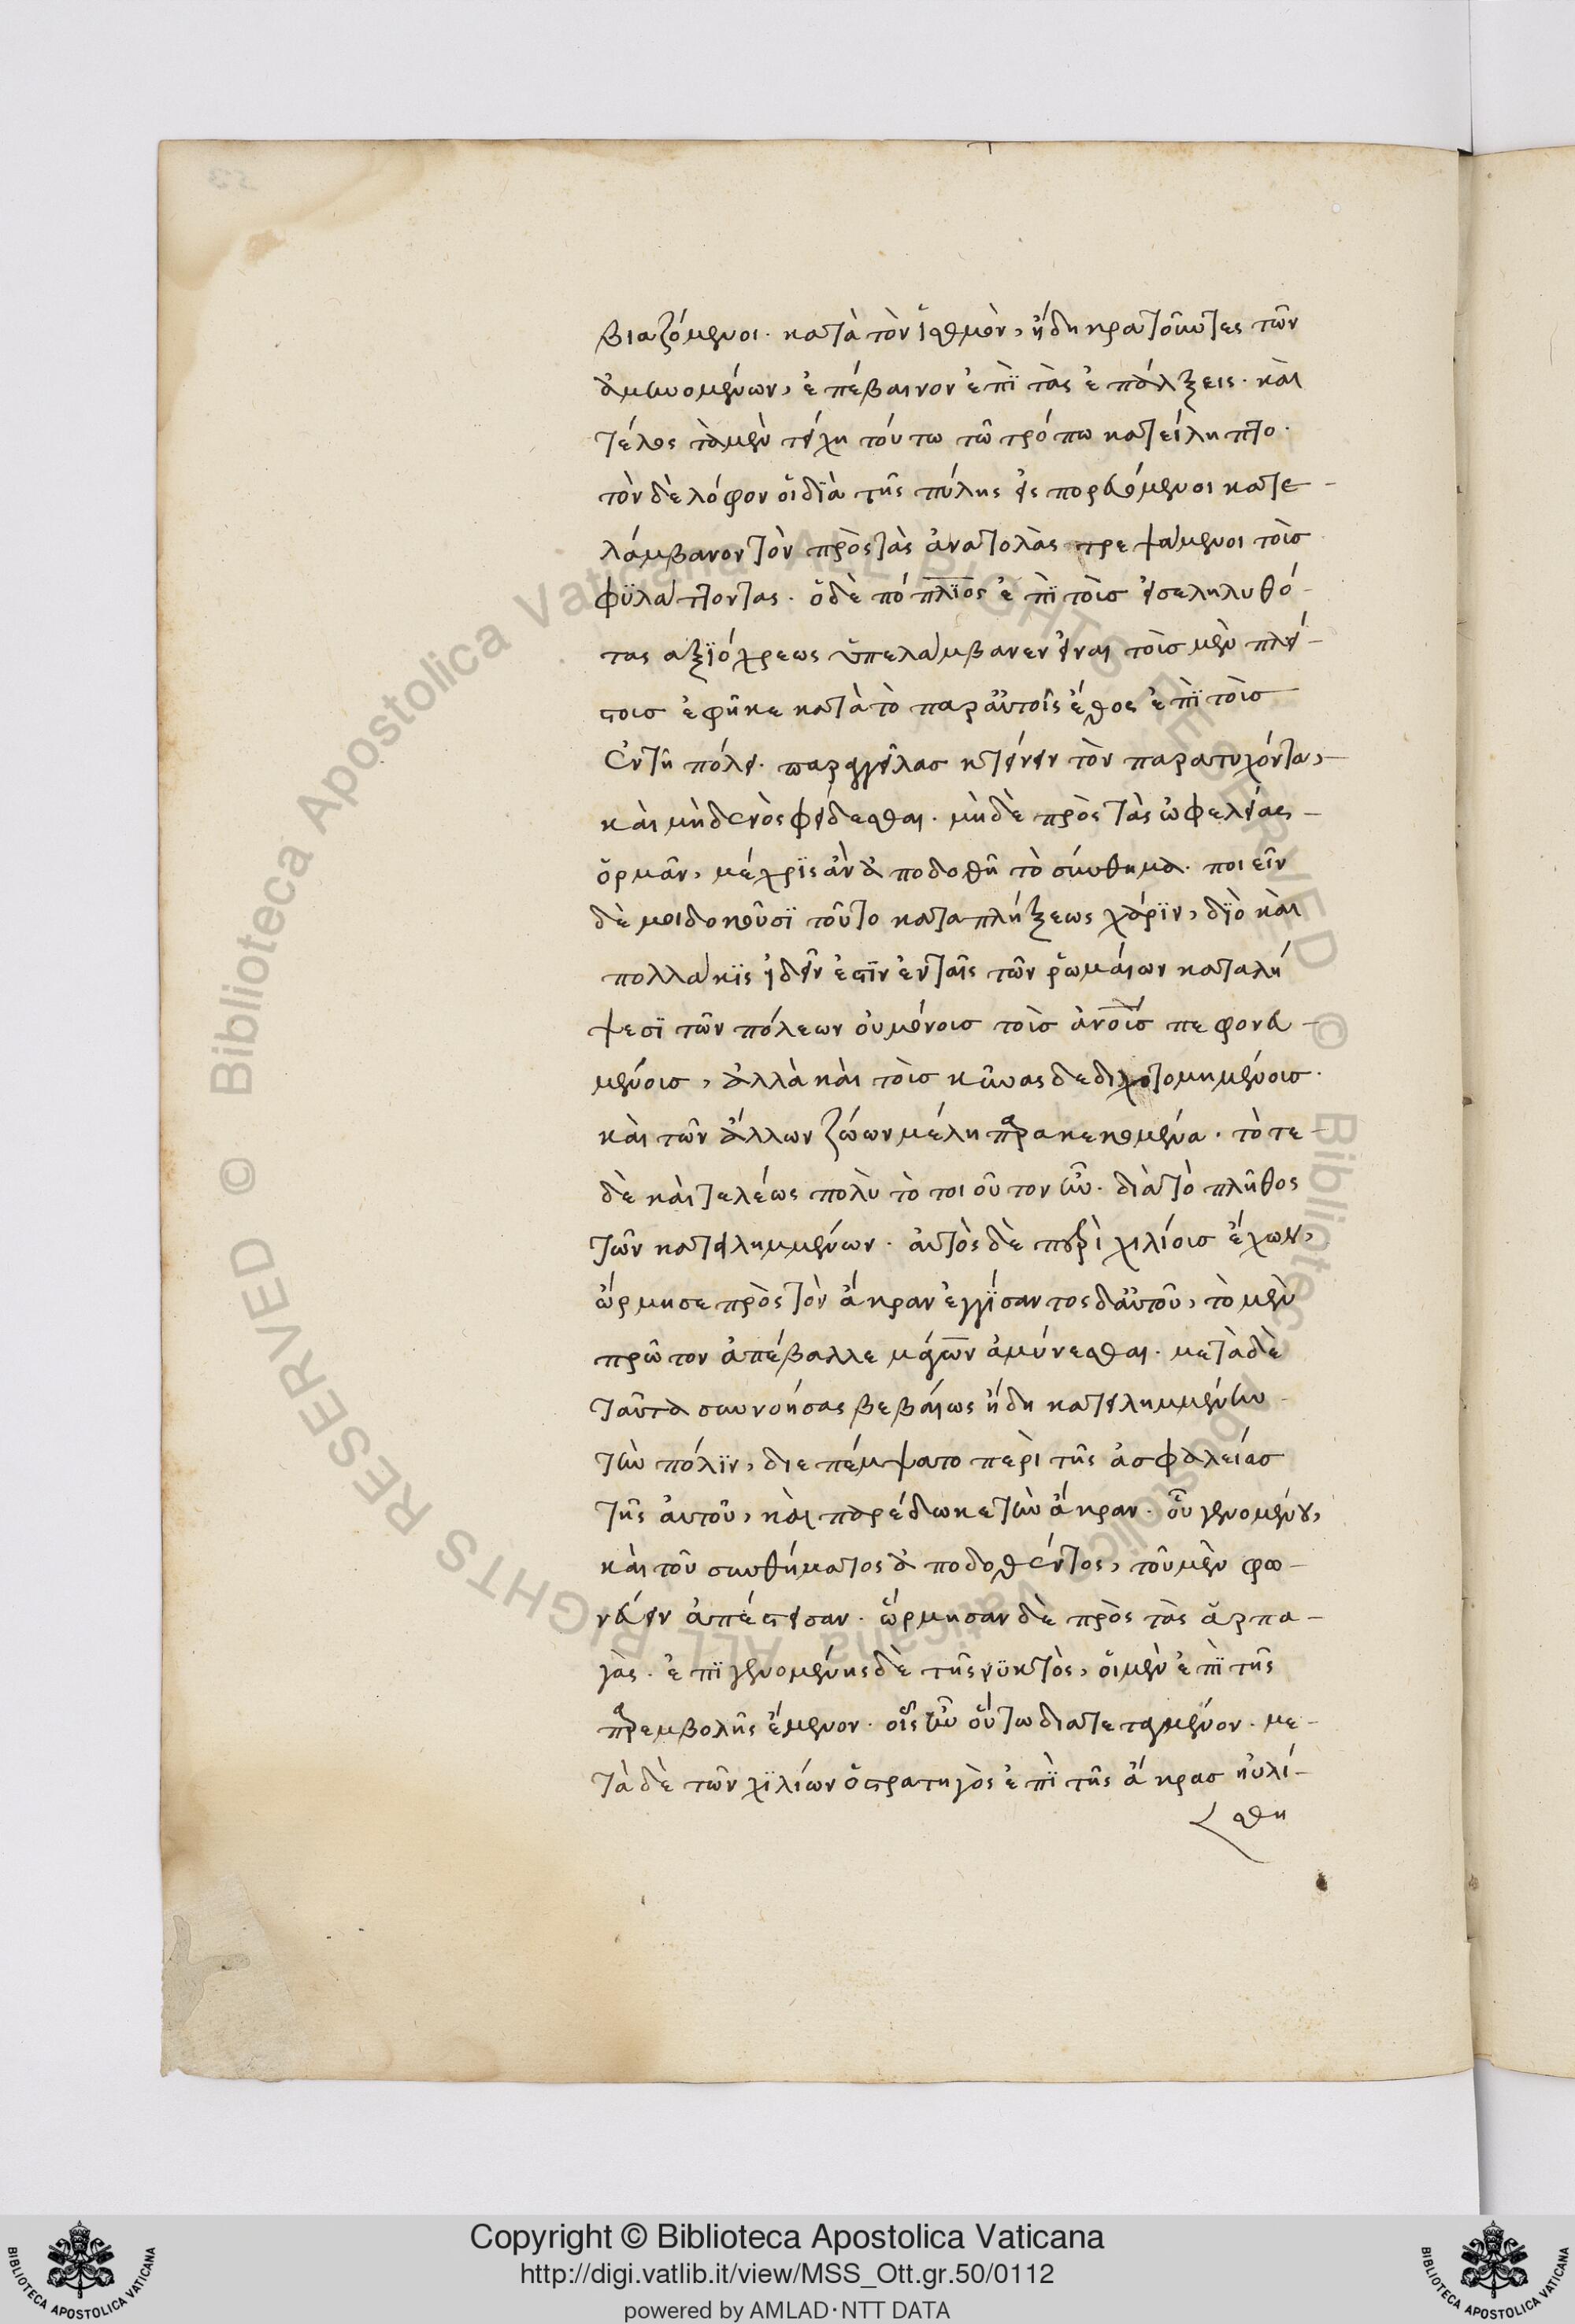 βιαζόμενοι· κατὰ τὸν ἰσθμὸν, ἤδη κρατοῦντες τῶν
ἀμυνομένων, ἐπέβαινον ἐπὶ τὰς ἐπάλξεις· καὶ
τέλος τὰ μὲν τείχη τούτω τῶ τρόπω κατείληπτο·
τὸν δὲ λόφον οἱ διὰ τῆς πύλης εἰσπορευόμενοι κατε-
λάμβανον τὸν πρὸς τὰς ἀνατολὰς τρεψάμενοι τοὺς
φυλάττοντας· ὁ δὲ πόπλιος ἐπεὶ τοὺς εἰσεληλυθό-
τας ἀξιόχρεως ὑπελάμβανεν εἶναι τοὺς μὲν πλεί-
στους ἐφῆκε κατὰ τὸ παρ' αὐτοῖς ἔθος ἐπὶ τοὺς
ἐν τῆ πόλει· παραγγείλας κτείνειν τὸν παρατυχόντα,
καὶ μηδενὸς φείδεσθαι· μὴ δὲ πρὸς τὰς ὠφελείας
ὁρμᾶν, μέχρις ἂν ἀποδοθῆ τὸ σύνθημα· ποιεῖν
δὲ μοι δοκοῦσι τοῦτο καταπλήξεως χάριν, διὸ καὶ
πολλάκις ἰδεῖν ἐστὶν ἐν ταῖς τῶν ῥωμαίων καταλή
ψεσι τῶν πόλεων οὐ μόνους τοὺς ἀνους πεφονευ-
μένους, ἀλλὰ καὶ τοὺς κύνας δεδιχοτομημένους·
καὶ τῶν ἄλλων ζώων μέλη παρακεκομμένα· τότε
δὲ καὶ τελέως πολὺ τὸ τοιοῦτον ἦν· διὰ τὸ πλῆθος
τῶν κατειλημμένων· αὐτὸς δὲ περὶ χιλίους ἔχων,
ὥρμησε πρὸς τὸν ἄκραν ἐγγίσαντος δ' αὐτοῦ, τὸ μὲν
πρῶτον ἀπέβαλλε μάγων ἀμύνεσθαι· μετὰ δὲ
ταῦτα συννοήσας βεβαίως ἤδη κατειλημμένην
τὴν πόλιν, διεπέμψατο περὶ τῆς ἀσφαλείας
τῆς αὐτοῦ, καὶ παρέδωκε τὴν ἄκραν· οὗ γενομένου,
καὶ τοῦ συνθήματος ἀποδοθέντος, τοῦ μὲν φο-
νεύειν ἀπέστησαν· ὥρμησαν δὲ πρὸς τὰς ἁρπα-
γὰς· ἐπιγενομένης δὲ τῆς νυκτὸς, οἱ μὲν ἐπὶ τῆς
παρεμβολῆς ἔμενον· οἷς ἦν οὕτω διατεταγμένον· με-
τὰ δὲ τῶν χιλίων ὁ στρατηγὸς ἐπὶ τῆς ἄκρας ηὐλί-
σθη
Copyright © Biblioteca Apostolica Vaticana
http://digi.vatlib.it/view/MSS_Ott.gr.50/0112
powered by AMLAD·NTT DATA